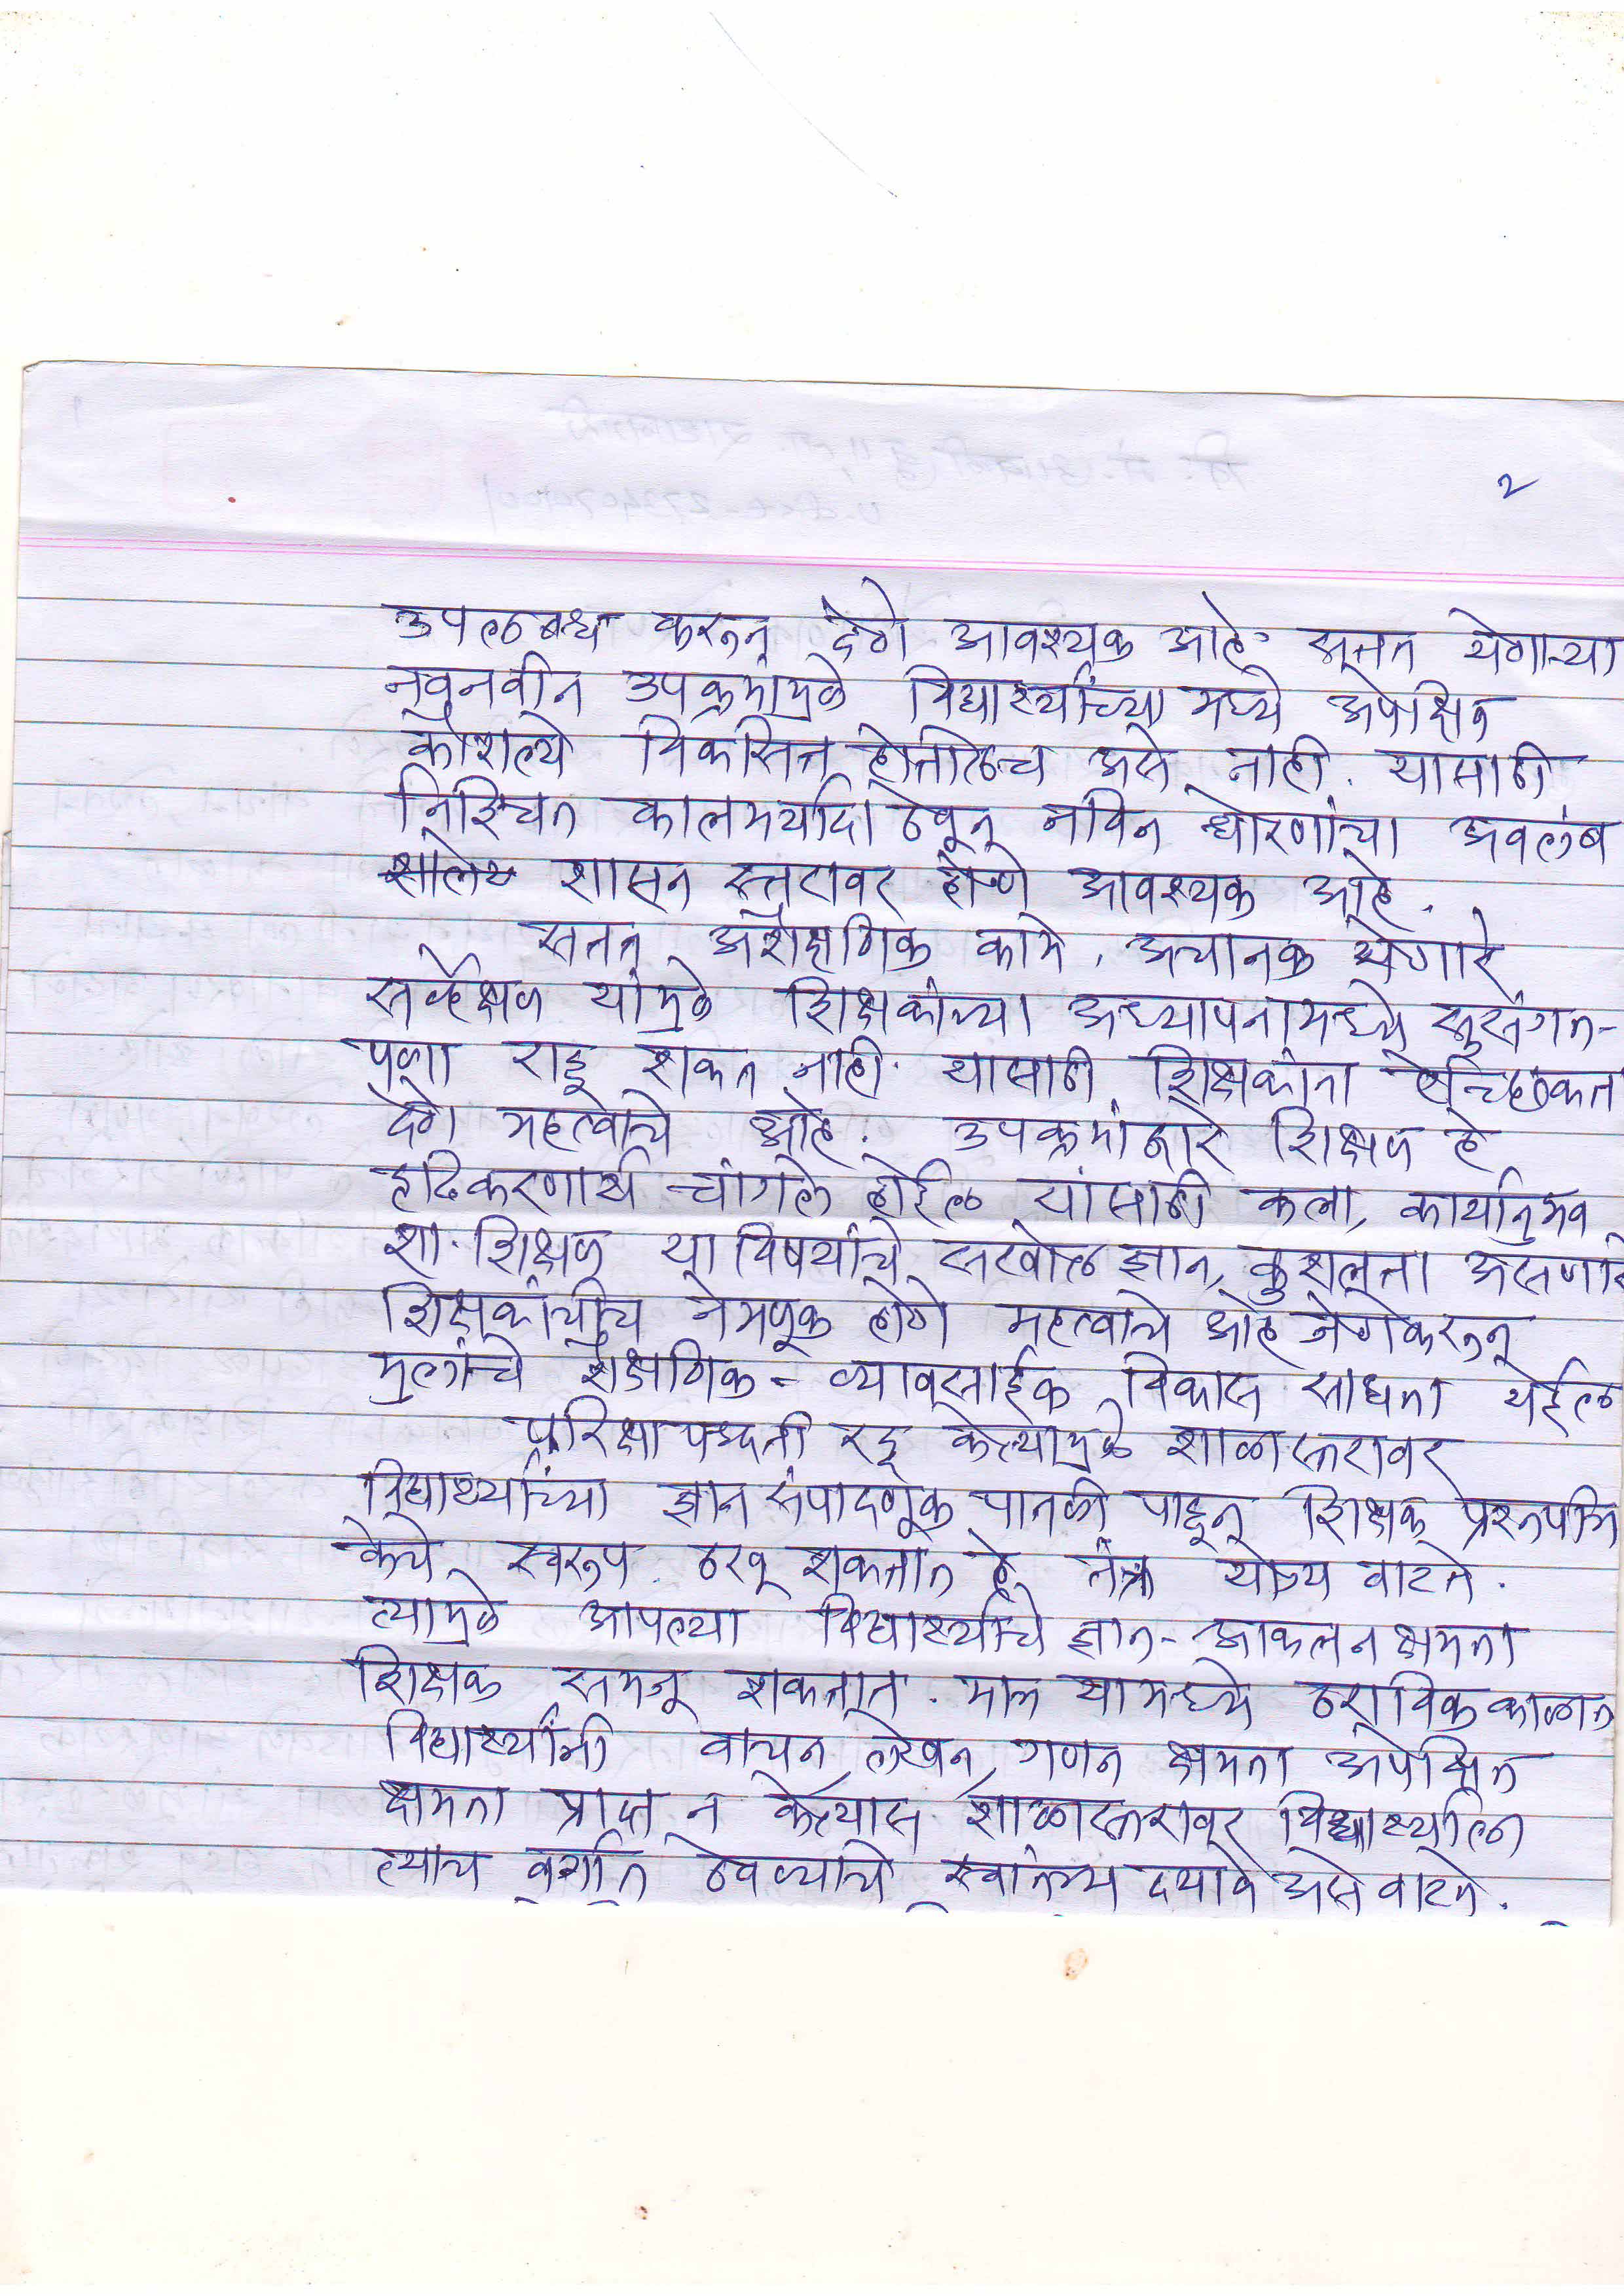 २
उपलब्ध करून देणे आवश्यक आहे. सतत येणाऱ्या
नवनवीन उपक्रमांमुळे विद्यार्थ्यांच्या मध्ये अपेक्षित
कौशल्ये विकसित होतीलच असे नाही. यासाठी
निश्चित कालमर्यादा ठेवून नविन धोरणांचा अवलंब
शालेय शासन स्तरावर होणे आवश्यक आहे.
सतत अशैक्षणिक कामे, अचानक येणारे
सर्वेक्षण यांमुळे शिक्षकांच्या अध्यापनामध्ये सुसंगत-
पणा राहू शकत नाही. यासाठी शिक्षकांना
देणे महत्वाचे आहे. उपक्रमांद्वारे शिक्षण हे
दृढिकरणार्थ चांगले होईल यांसाठी कला, कार्यानुभव
शा. शिक्षण या विषयांचे सखोल ज्ञान, कुशलता असणारे
शिक्षकांचीच नेमणूक होणे महत्वाचे आहे जेणेकरून
मुलांचे शैक्षणिक - व्यावसाईक विकास साधता येईल
परिक्षा पध्दती रद्द केल्यामुळे शाळास्तरावर
विद्यार्थ्यांच्या ज्ञान संपादणूक पातळी पाहून शिक्षक प्रश्नपत्रि
केचे स्वरूप ठरवू शकतात हे तंत्र योग्य वाटते.
त्यामुळे आपल्या विद्यार्थ्यांचे ज्ञान - आकलन क्षमता
शिक्षक समजू शकतात. मात्र यामध्ये ठराविक काळात
विद्यार्थ्यांनी वाचन लेखन, गणन क्षमता अपेक्षित
क्षमता प्राप्त न केल्यास शाळास्तरावर विद्यार्थ्याला
त्याच वर्गात ठेवण्याचे स्वातंत्र्य दयावे असे वाटते.